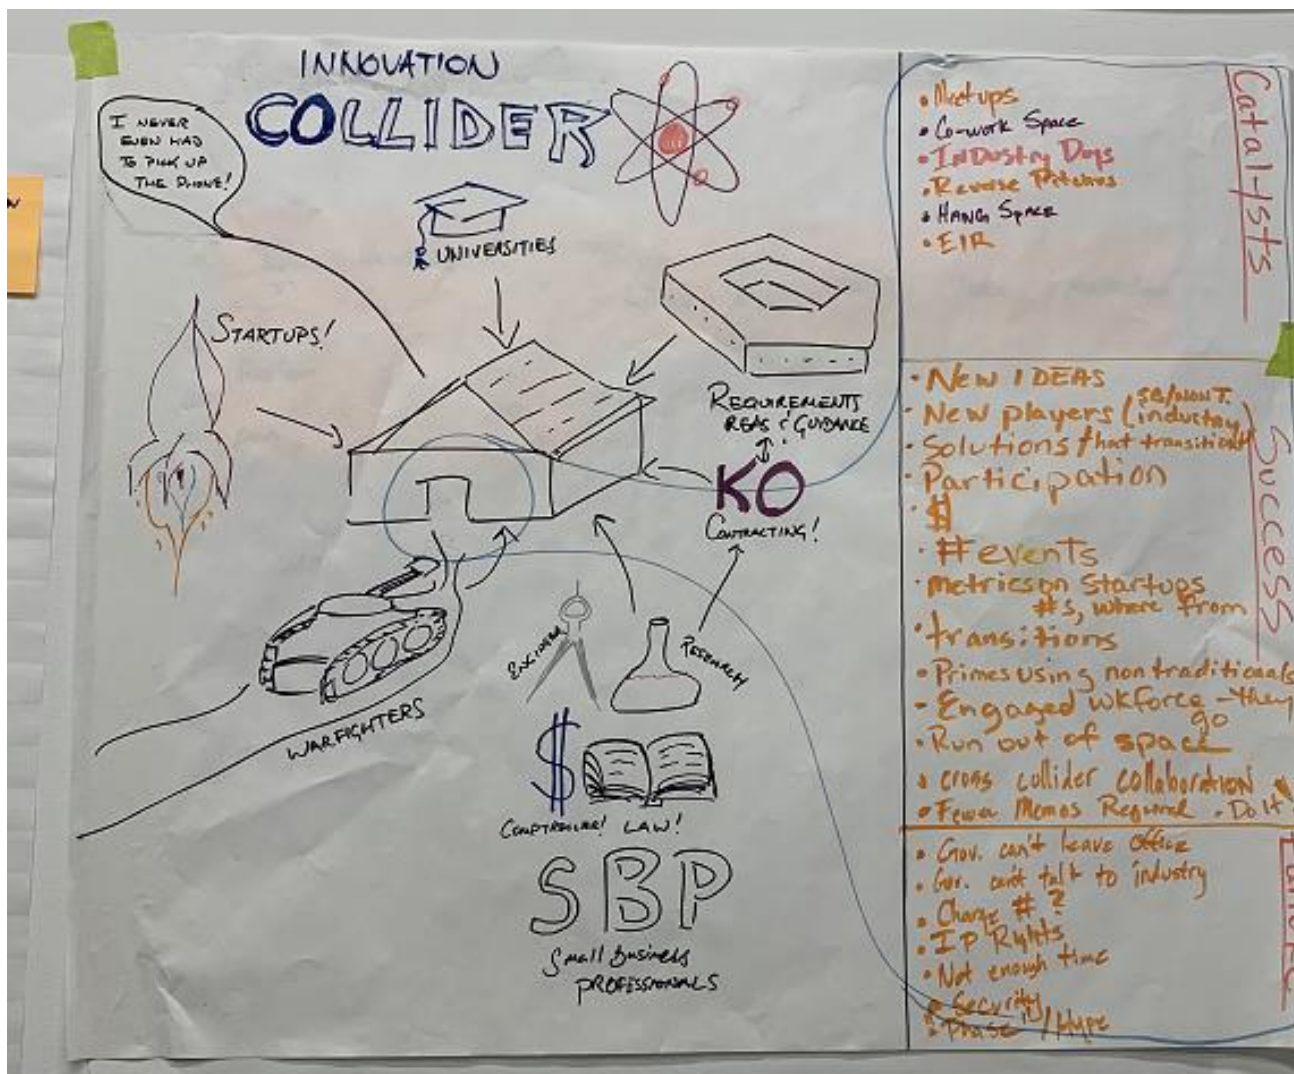 INNOVATION
COLLIDER
I NEVER
EVEN HAD
TO PICK UP
THE PHONE!
UNIVERSITIES
STARTUPS!
REQUIREMENTS
REAS & GUIDANCE
KO
CONTRACTING!
ENGINEER
RESEARCH
WARFIGHTERS
$
COMPTROLLER! LAW!
SBP
Small Business
PROFESSIONALS
Catalysts
• Meetups
• Co-work Space
• Industry Days
• Reverse Pitches
• HANG SPACE
• EIR
Success
• New IDEAS
SB/NON T.
• New players (industry)
• Solutions that transition
• Participation
• $
• # events
• Metrics on startups
#s, where from
• transitions
• Primes using nontraditionals
• Engaged wkforce - they
go
• Run out of space
• cross collider collaboration
• Fewer Memos Required - Do it
• Gov. can't leave office
• Gov. can't talk to industry
• Charge # ?
• IP Rights
• Not enough time
• Security
• Phase / Hype